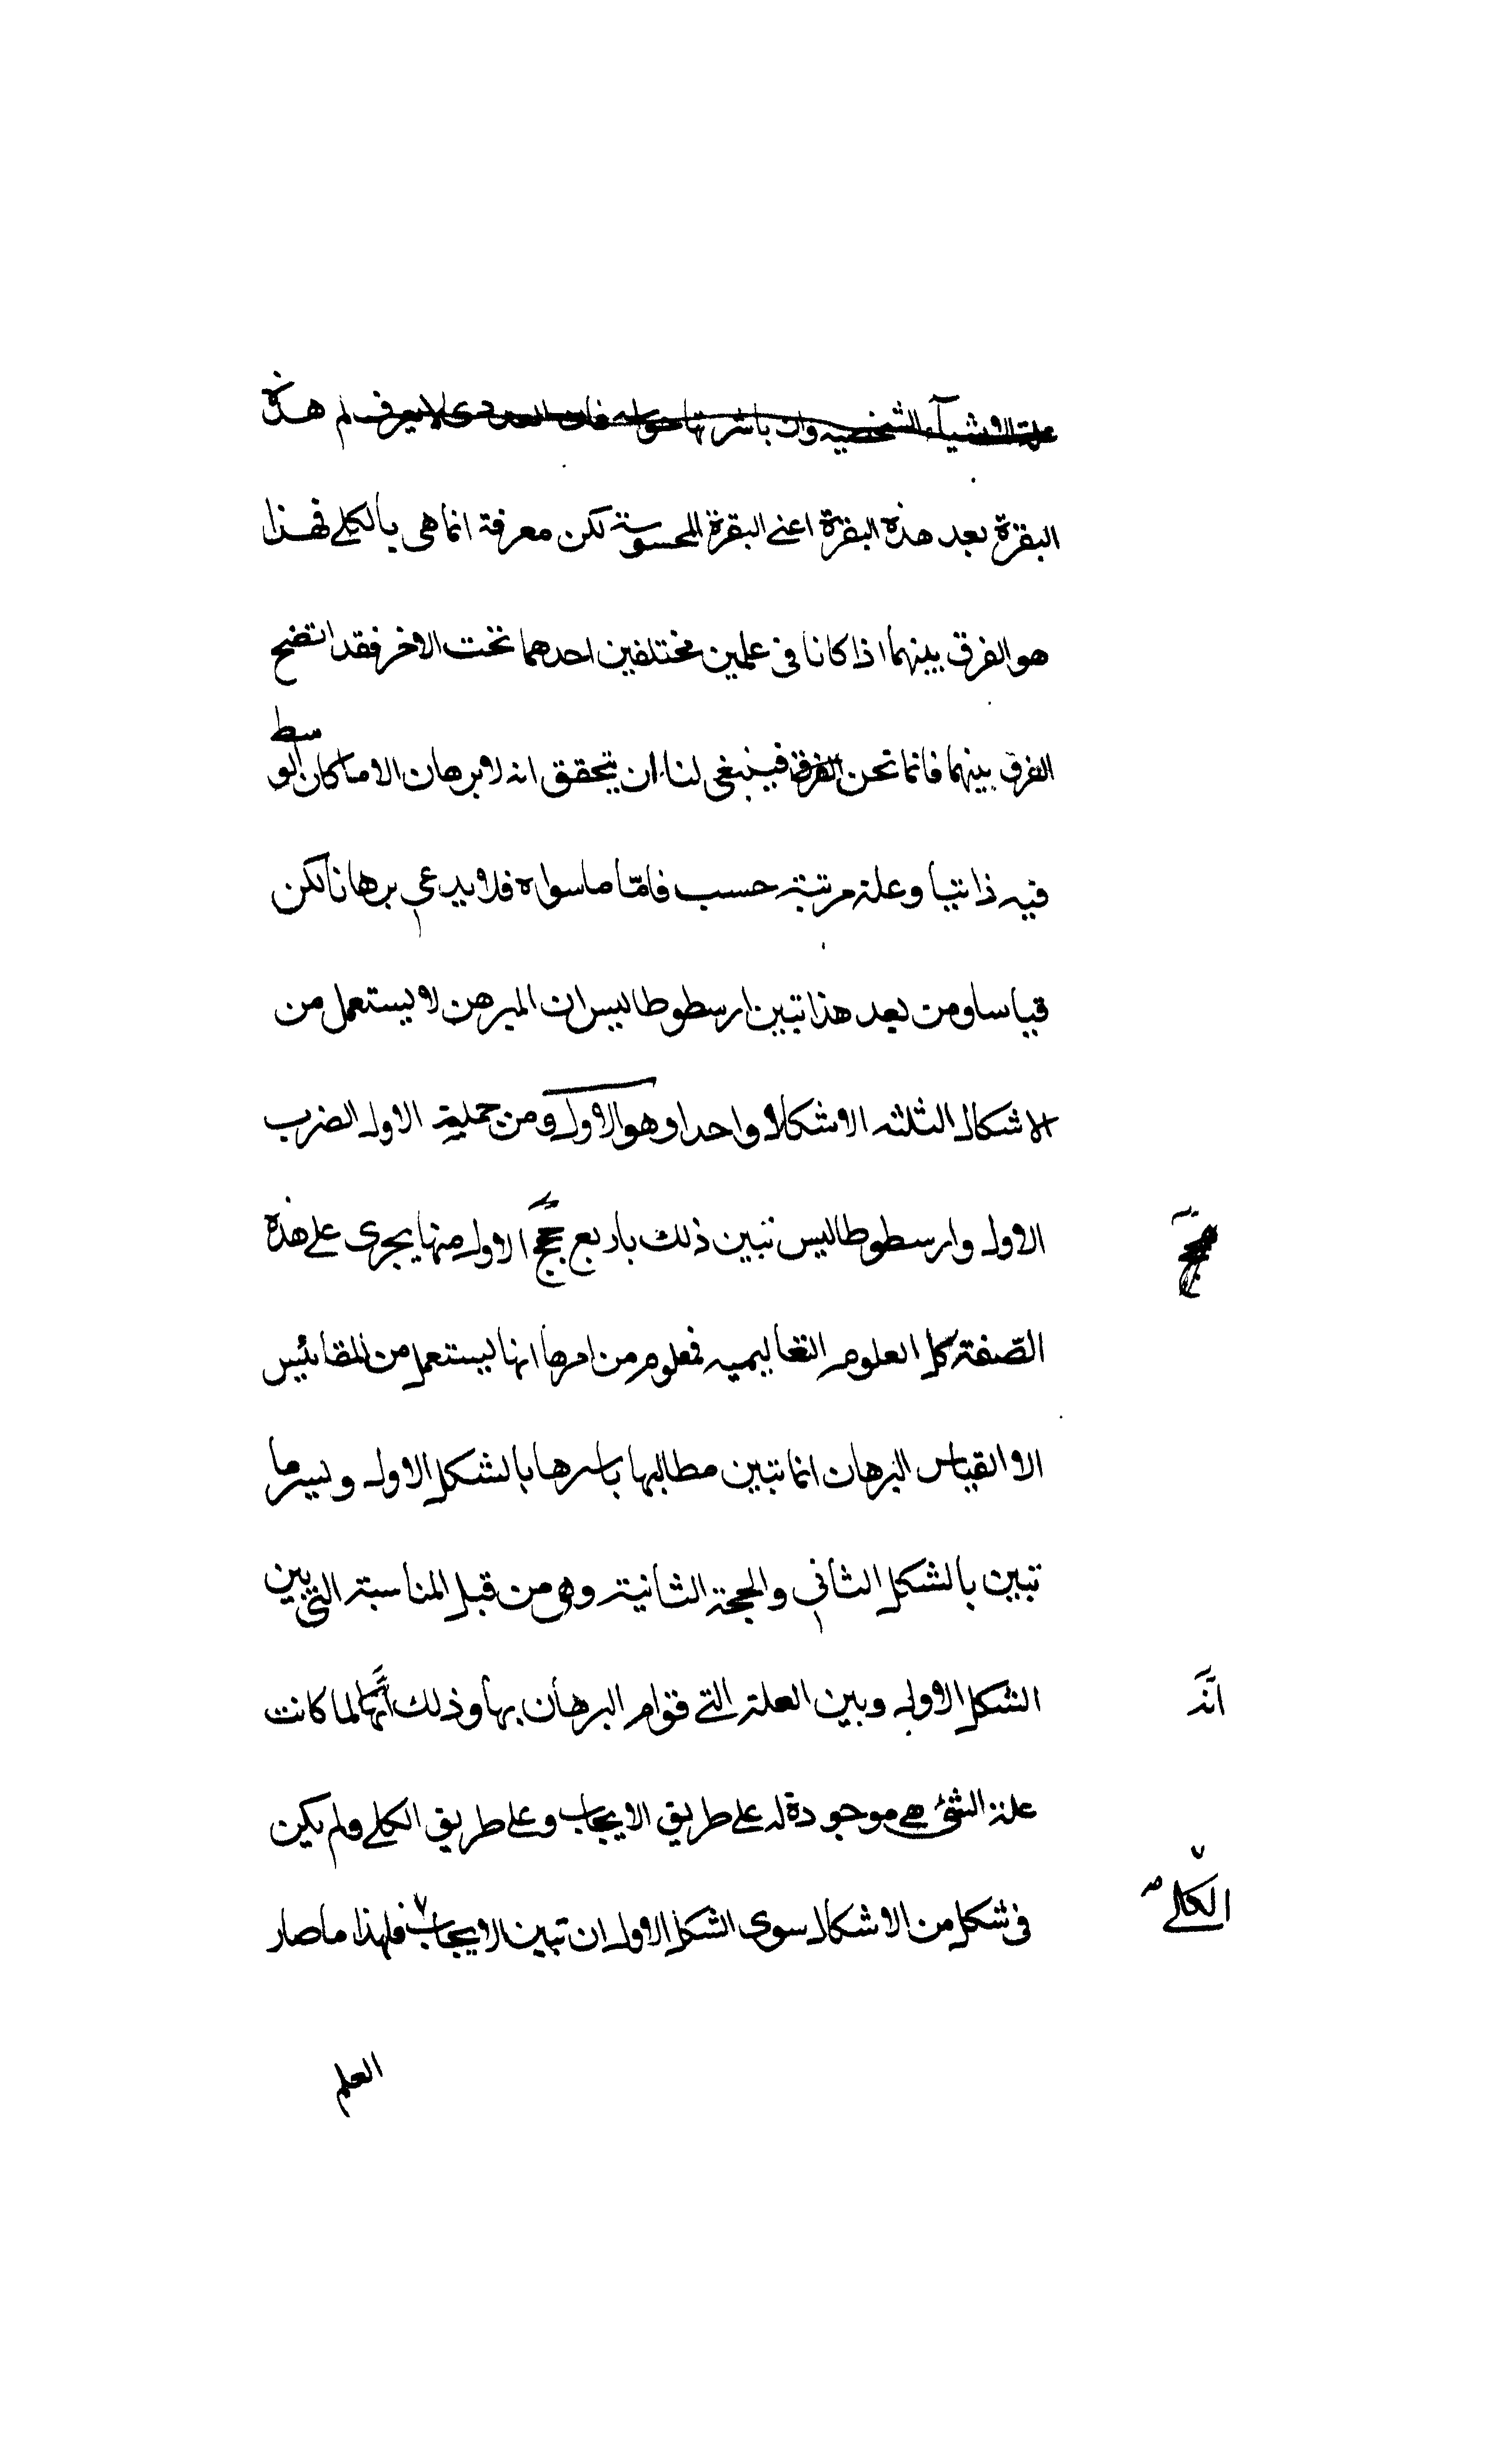 علة الاشيآء الشخصيه وان باشرتها حواسه فان العددى لا يعرف لم هذه
البقرة بعد هذه البقرة اعنى البقرة المحسوسة لكن معرفة انما هى بالكلى فهذا
هو الفرق بينهما اذا كانا فى علمين مختلفين احدهما تحت الاخر فقد اتضح
الفرق بينهما فانما نحن الفرق فينبغى لنا ان نتحقق انه لا برهان الا ما كان الوسط
فيه ذاتيا وعلة مرتبة حسب فامّا ما سواه فلا يدعى برهانا لكن
قياسا ومن بعد هذا تبين ارسطوطاليس ان المبرهن لا يستعمل من
الاشكال الثلثه الا شكلا واحدا وهو الاول ومن جملة الاول الضرب
الاول وارسطوطاليس تبين ذلك باربع حجج الاول منها يجرى على هذه
الصّفة كل العلوم التعاليميه فمعلوم من امرها انها ليستعمل من المقائيس
الا القياس البرهان انما تبين مطالبها باسرها بالشكل الاول ويسير ما
تبين بالشكل الثانى والحجة الثانية وهى من قبل المناسبة التى بين
الشكل الاول وبين العلة التى قوام البرهان بها وذلك انّها لما كانت
انّه
علة الشئ هى موجودة له على طريق الايجاب وعلى طريق الكلى ولم يكن
فى شكل من الاشكال سوى الشكل الاول ان تبين الايجاب فلهذا ما صار
الكلى
العلم